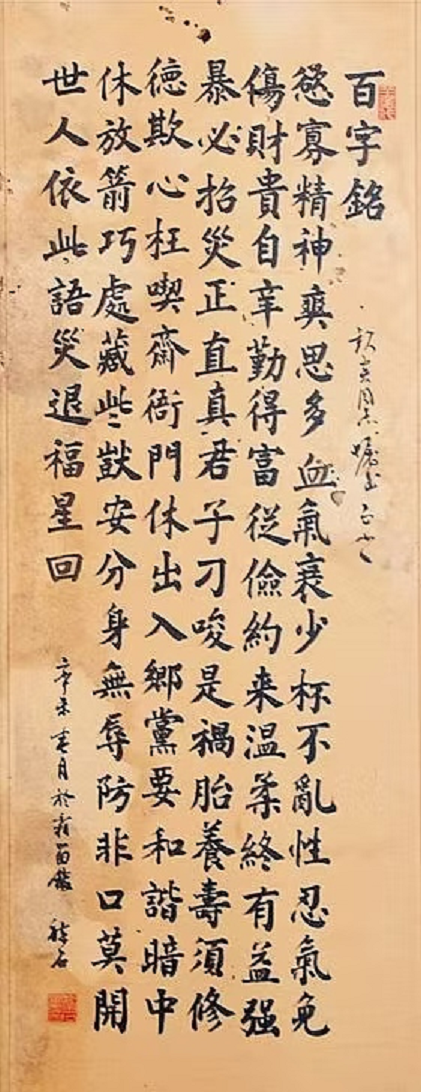 百字銘
同志囑書正之
慾寡精神爽思多血氣衰少杯不亂性忍氣免
傷財貴自辛勤得富從儉約来温柔終有益强
暴必招災正直真君子刁唆是禍胎養壽須修
德欺心枉喫齋衙門休出入鄉黨要和諧暗中
休放箭巧處藏些獃安分身無辱防非口莫開
世人依此語災退福星回
辛未春月於